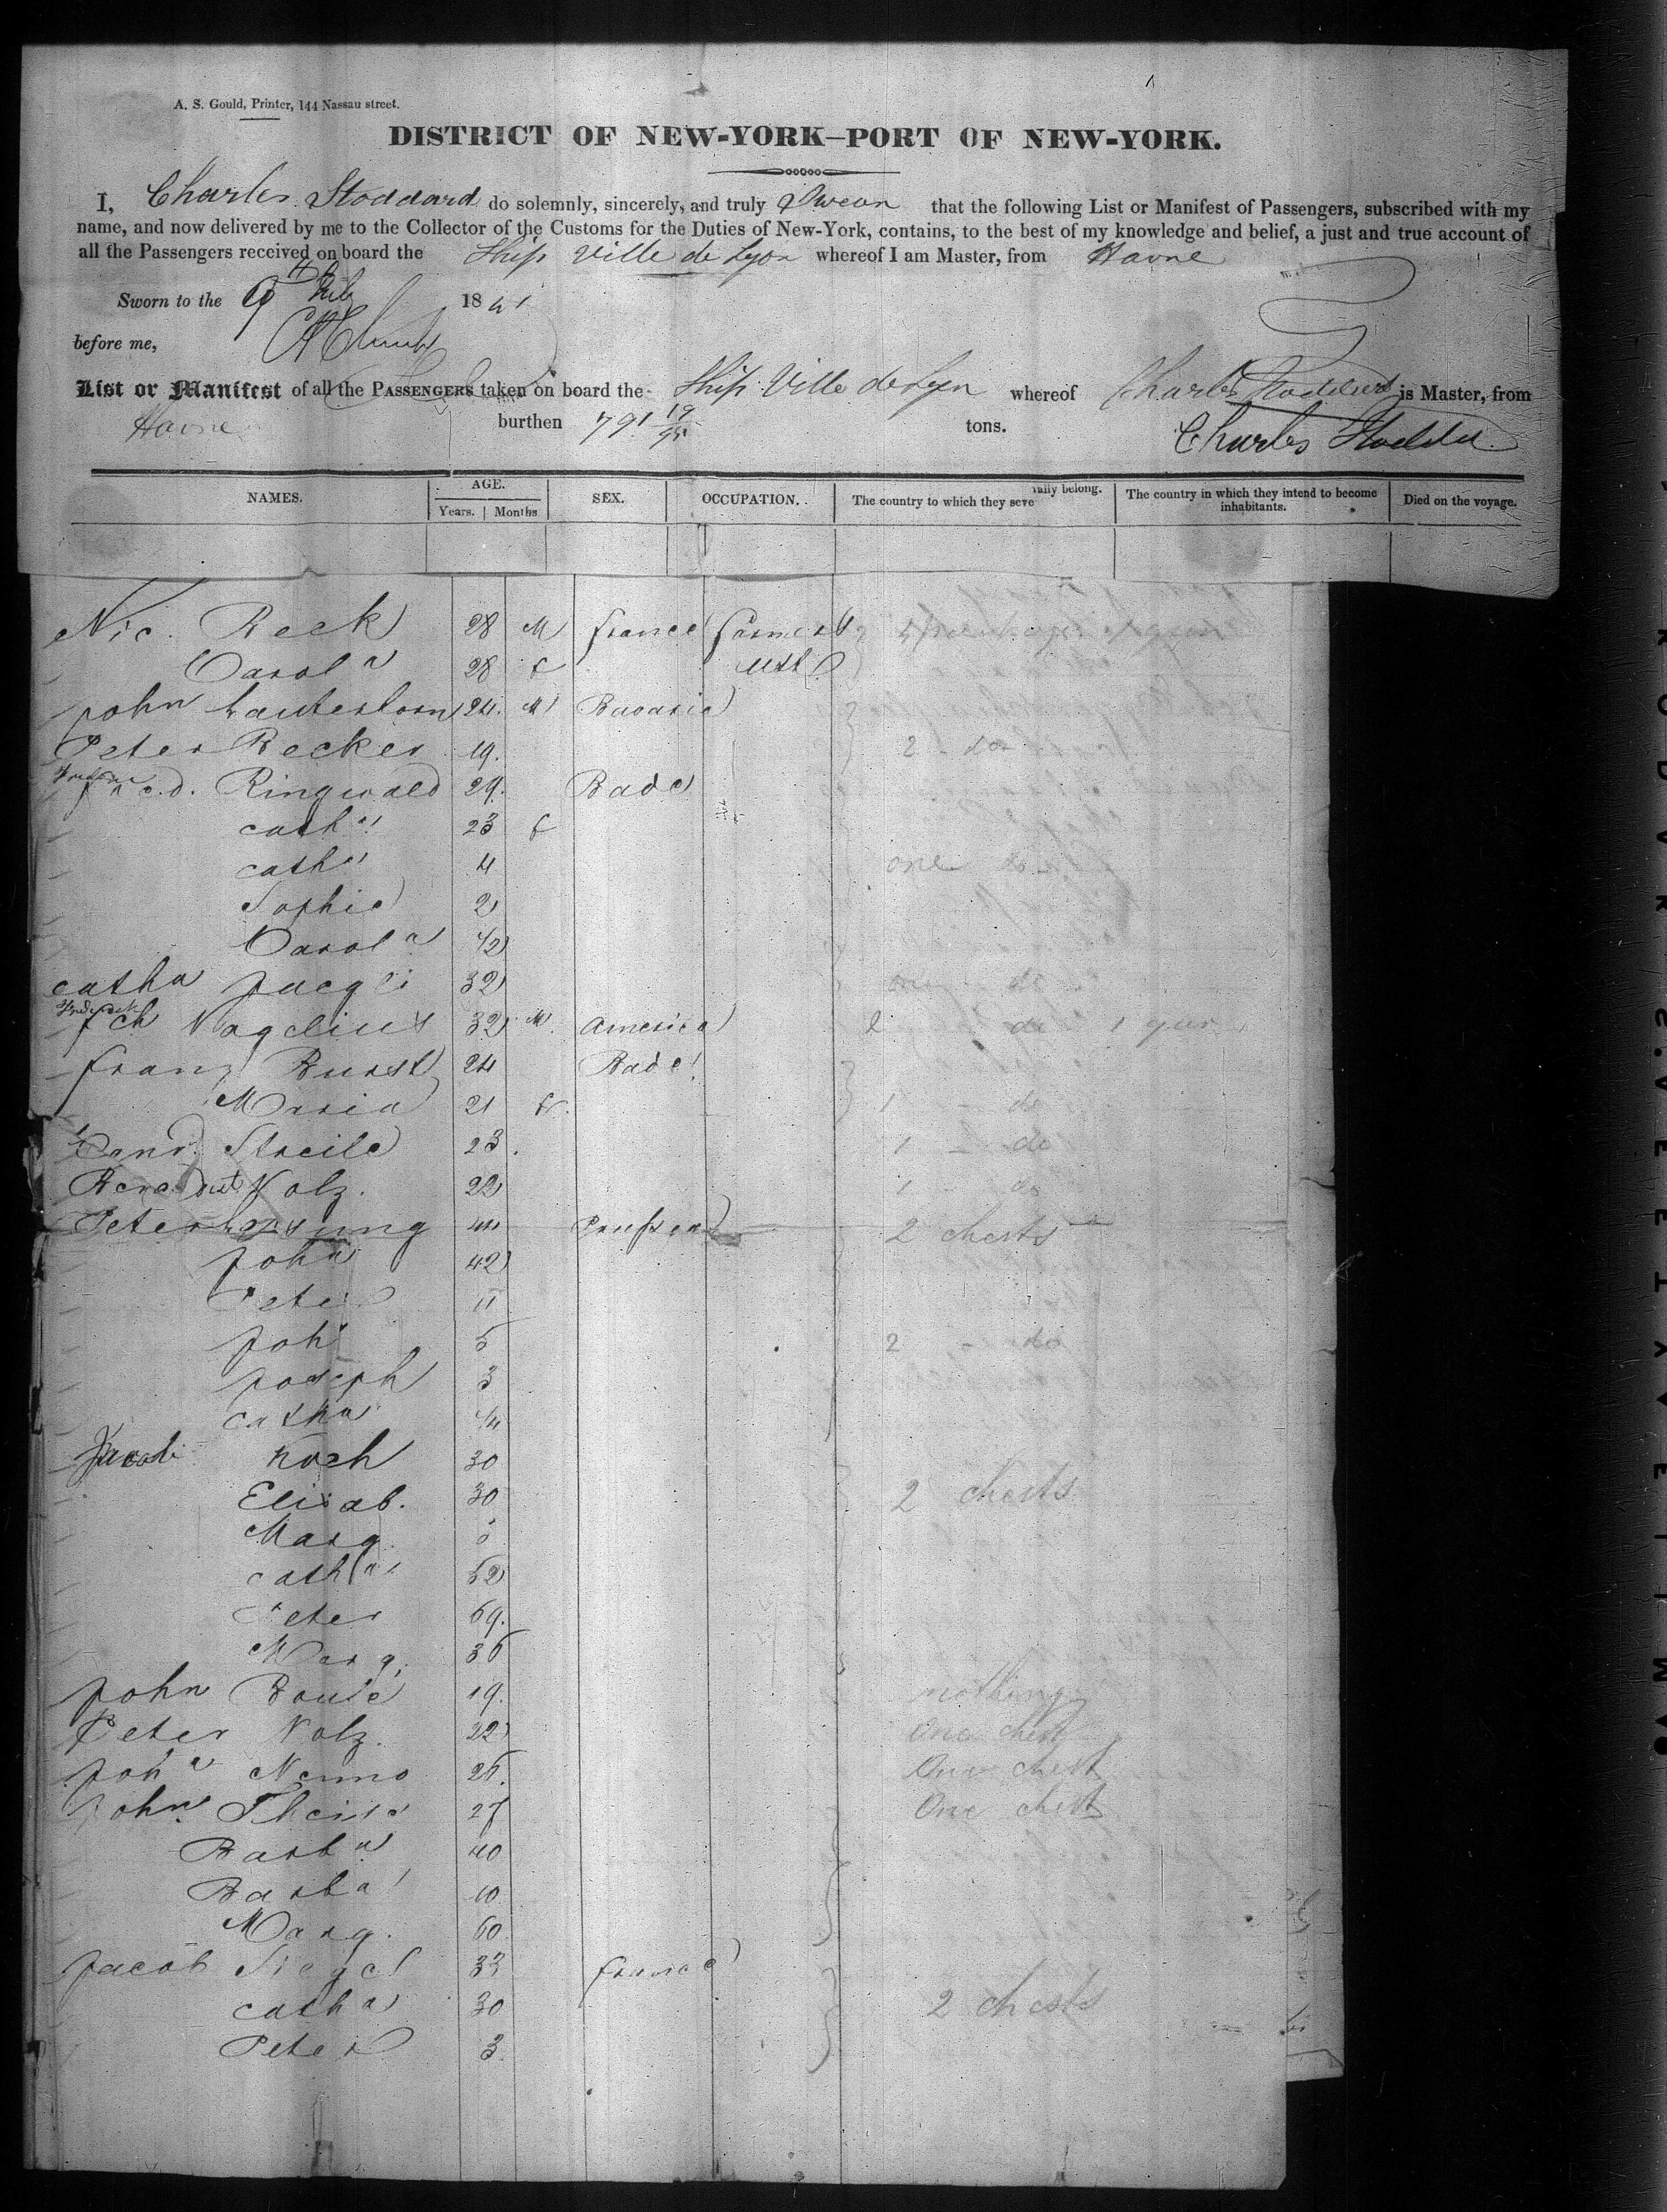 A. S. Gould, Printer, 144 Nassau street.
DISTRICT OF NEW-YORK—PORT OF NEW-YORK.
I, Charles Stoddard do solemnly, sincerely, and truly Swear that the following List or Manifest of Passengers, subscribed with my
name, and now delivered by me to the Collector of the Customs for the Duties of New-York, contains, to the best of my knowledge and belief, a just and true account of
all the Passengers received on board the Ship Ville de Lyon whereof I am Master, from Havre
Sworn to the 9th Feb 1841
before me,
List or Manifest of all the PASSENGERS taken on board the Ship Ville de Lyon whereof Charles Stoddard is Master, from
Havre burthen 791 19/95 tons.
Charles Stoddard
NAMES. AGE. Years. Months SEX. OCCUPATION. The country to which they severally belong. The country in which they intend to become inhabitants. Died on the voyage.
Nic. Beck 28 M france farmers
Carola 28 f
john Lauterborn 24. M Bavaria
Peter Becker 19. 2 do
fred. Ringwald 29. Bade
catha 23 f
catha 4 one do
Sophie 2
Carola 1/2
catha jaegli 32 one do
Frederick
fch Nagelius 32 M. America 2 do 1 gun
franz Burst 24 Bade
Maria 21 f. 1 do
Conr. Streile 23. 1 - do
Benedict Volz. 22 1 - do
Peter 44 Prussia 2 chests
john 42
Peter 11
joh 5 2 - do
joseph 3
catha 1/4
Jacob Koch 30
Elisab. 30 2 chests
Marg.
catha 52
Peter 69.
Marg. 36
john 19. nothing
Peter Volz. 22 One chest
joha Nenno 26. One chest
john Theise 27 One chest
Barba 40
Barba 10
Marg. 60.
jacob Siegel 33 france
catha 30 2 chests
Peter 3.